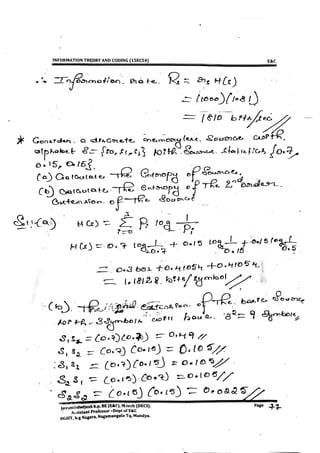 INFORMATION THEORY AND CODING (15EC54) E&C
∴ Information Rate. Rs = rs H(s)
= (1000)(1.81)
= 1810 bits/sec
* Consider a discrete memoryless Source with
alphabet S = {s0, s1, s2} with Source statistics {0.7,
0.15, 0.15}
(a) Calculate The Entropy of Source.
(b) Calculate The Entropy of The 2nd order
Extension of The Source
Sol:-(a) H(s) = Σ Pi log 1/Pi
i=0
H(s) = 0.7 log 1/0.7 + 0.15 log 1/0.15 + 0.15 log 1/0.15
= 0.3602 + 0.41054 + 0.41054
= 1.18128 bits/symbol
(b). The second extension of The basic Source
with 3 Symbols will have 3² = 9 Symbols
S1S1 = (0.7)(0.7) = 0.49
S1S2 = (0.7)(0.15) = 0.105
S1S3 = (0.7)(0.15) = 0.105
S2S1 = (0.15)(0.7) = 0.105
S2S2 = (0.15)(0.15) = 0.0225
BE (E&C), M.tech (DECS).
Assistant Professor -Dept of E&C
Nagamangala Tq, Mandya.
Page